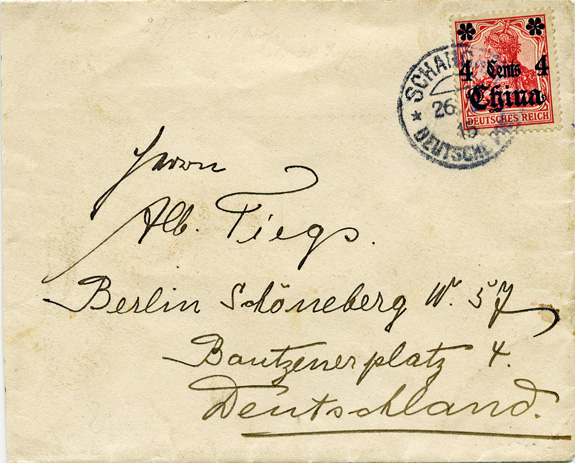 4 Cents 4
China
DEUTSCHES REICH
26
DEUTSCHE
Herrn
Alb. Tiegs.
Berlin Schöneberg W. 57
Bautzenerplatz 4.
Deutschland.